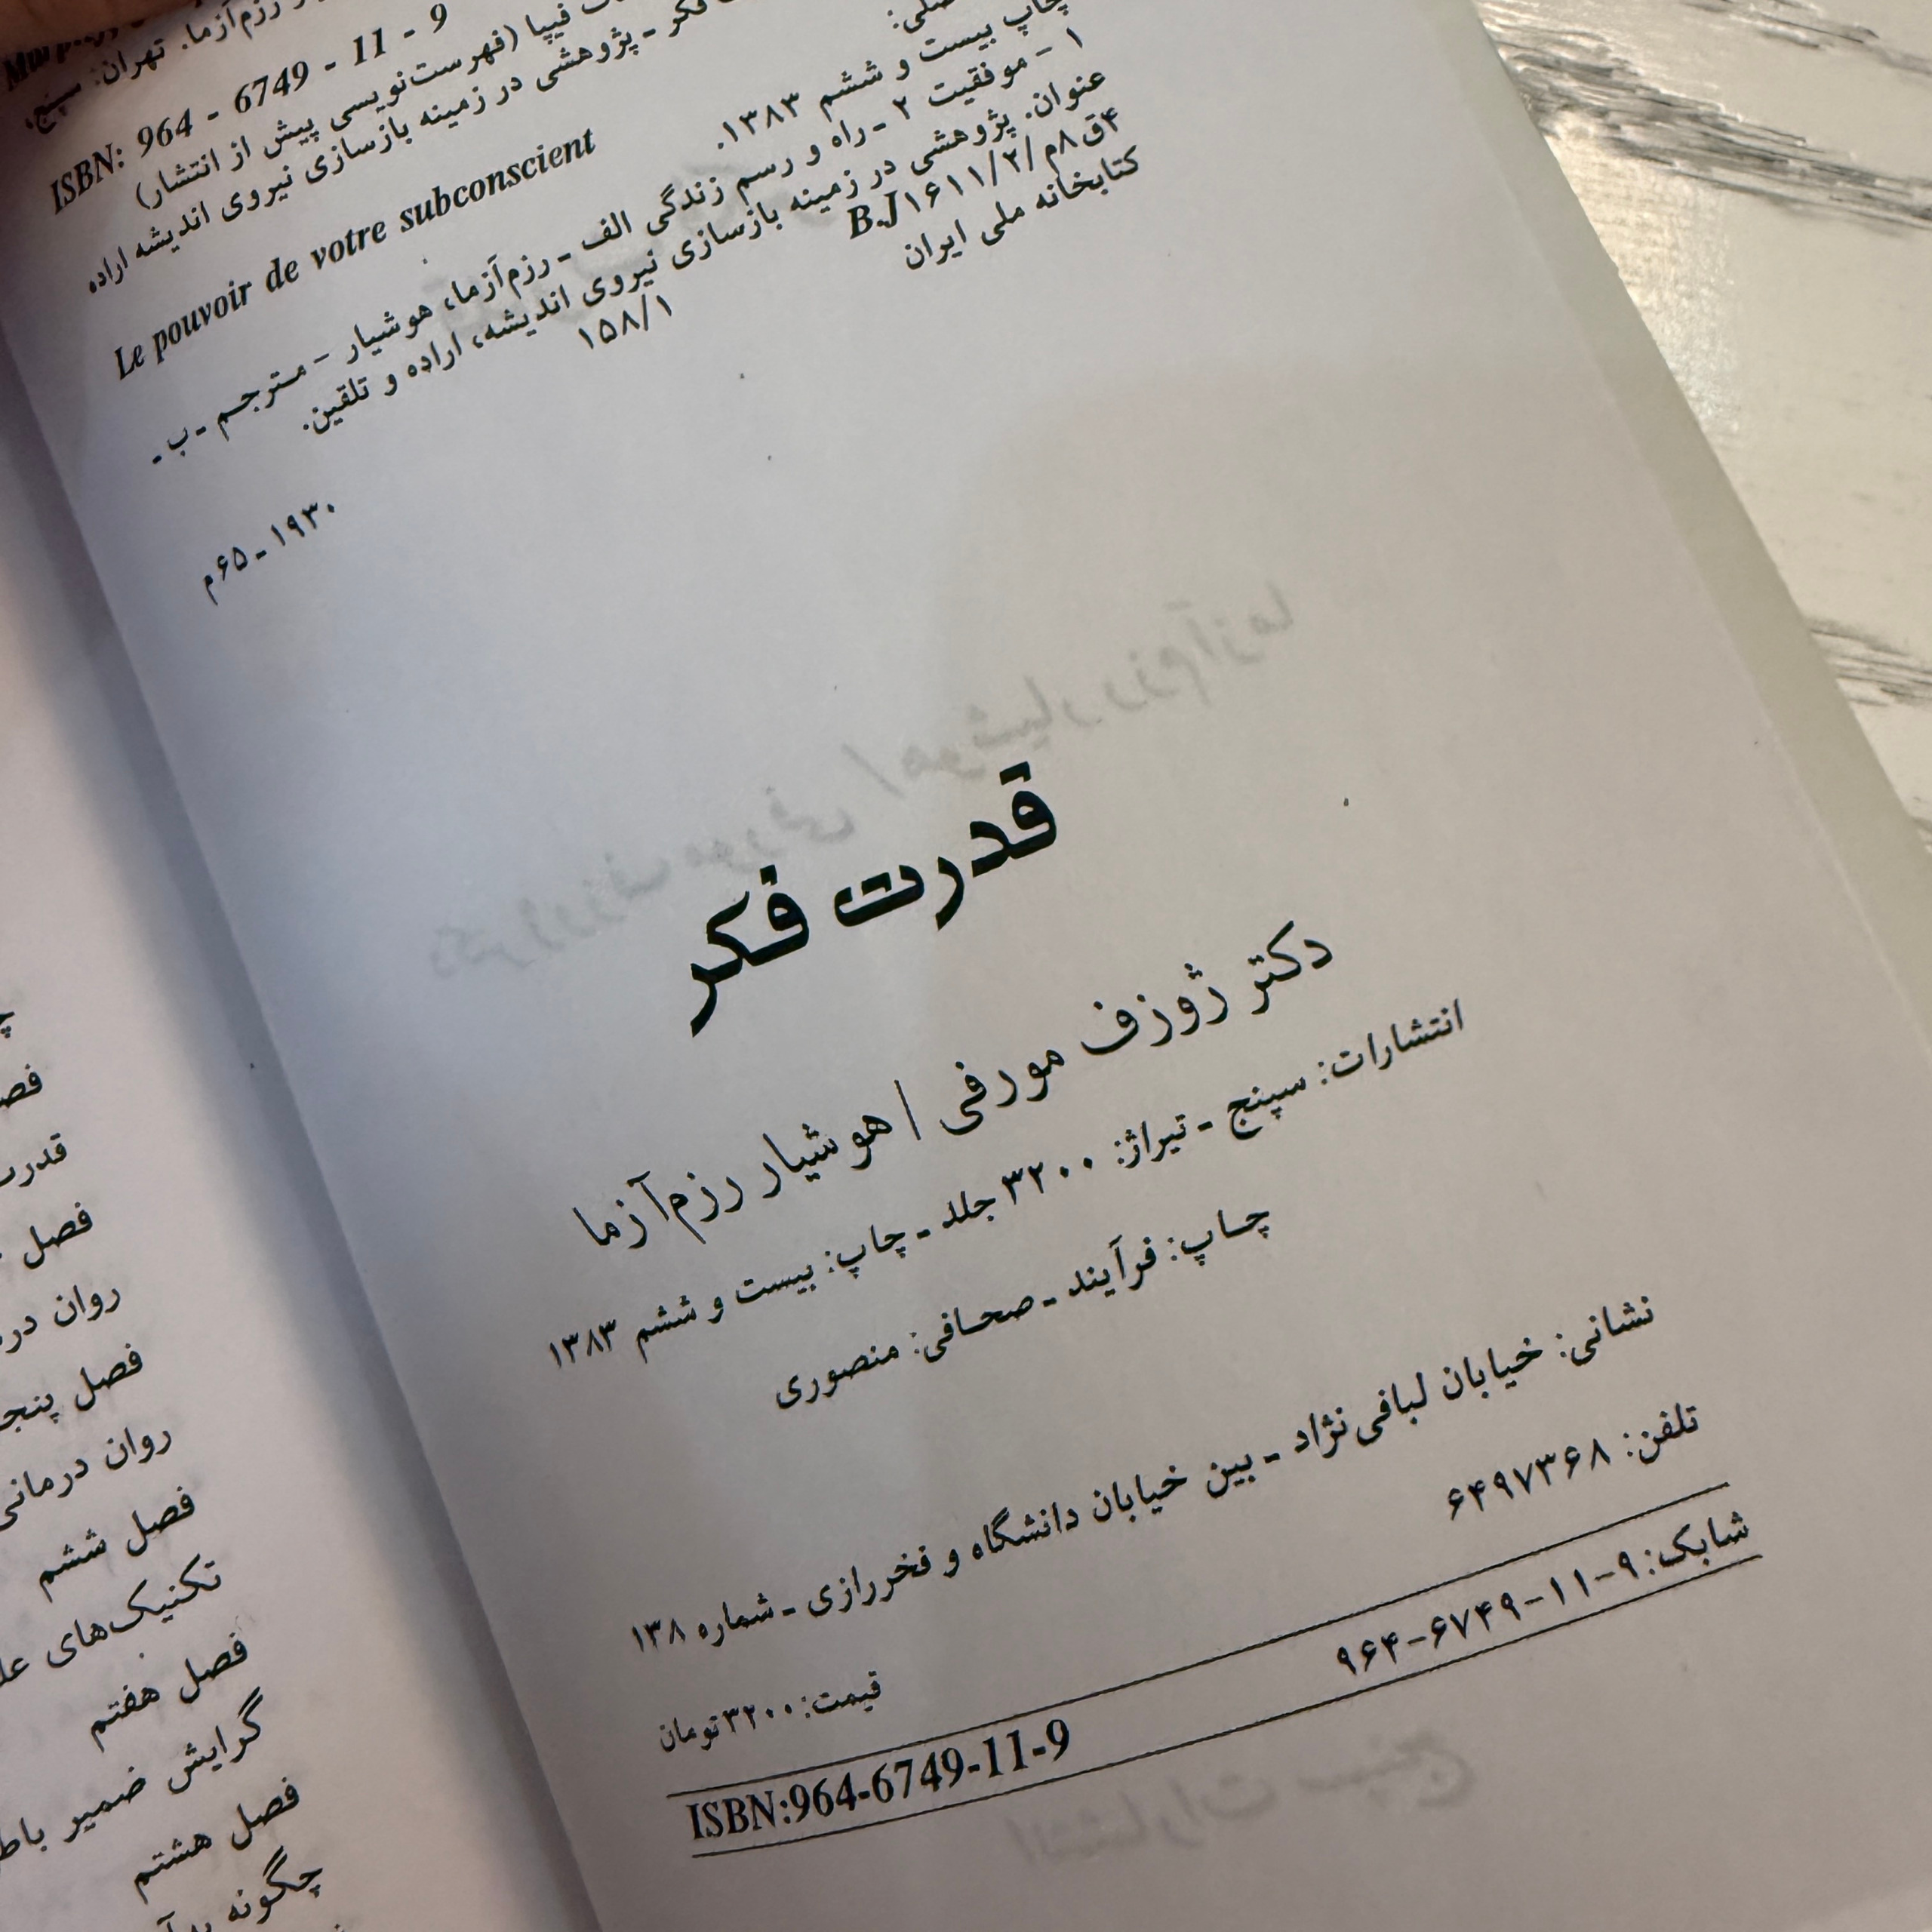 رزم‌آزما. تهران: سپنج،
ISBN: 964 - 6749 - 11 - 9
فیپا (فهرست‌نویسی پیش از انتشار)
فکر - پژوهشی در زمینه بازسازی نیروی اندیشه اراده
Le pouvoir de votre subconscient
چاپ بیست و ششم ۱۳۸۳.
۱ - موفقیت ۲ - راه و رسم زندگی الف - رزم‌آزما، هوشیار - مترجم - ب -
عنوان. پژوهشی در زمینه بازسازی نیروی اندیشه، اراده و تلقین.
۴ق۸م/۲/BJ۱۶۱۱
۱۵۸/۱
کتابخانه ملی ایران
۱۹۳۰ - ۶۵م
قدرت فکر
دکتر ژوزف مورفی / هوشیار رزم‌آزما
انتشارات: سپنج - تیراژ: ۳۲۰۰ جلد - چاپ: بیست و ششم ۱۳۸۳
چاپ: فرآیند - صحافی: منصوری
نشانی: خیابان لبافی‌نژاد - بین خیابان دانشگاه و فخررازی - شماره ۱۳۸
تلفن: ۶۴۹۷۳۶۸
قیمت: ۳۲۰۰ تومان
شابک: ۹-۱۱-۶۷۴۹-۹۶۴
ISBN:964-6749-11-9
فصل
روان
فصل
روان درمانی
فصل ششم
تکنیک‌های
فصل هفتم
گرایش ضمیر
فصل هشتم
چگونه